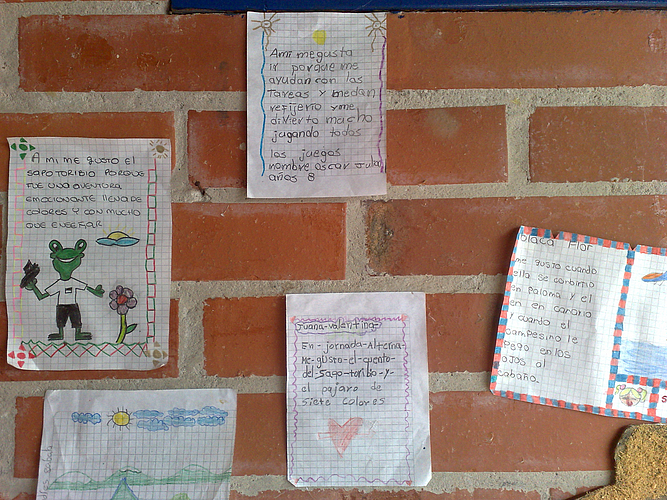 A mi me gusta
ir porque me
ayudan con las
tareas y me dan
refijerio y me
divierto mucho
jugando todos
los juegos
nombre oscar Julian
años 8
A MI ME GUSTO El
SAPO TORIBIO PORQUE
FUE UNA AVENTURA
EMOCIONANTE LLENA DE
COLORES Y CON MUCHO
QUE ENSEÑAR
Juana-valentina
En-jornada-Alterna-
Me-gusto-el-cuento-
del-Sapo-toribio-y-
el pajaro de
siete colores
blaca Flor
me gusto cuando
ella se combirtio
en paloma y el
en en canario
y cuando el
campesino le
pego en los
ojos al